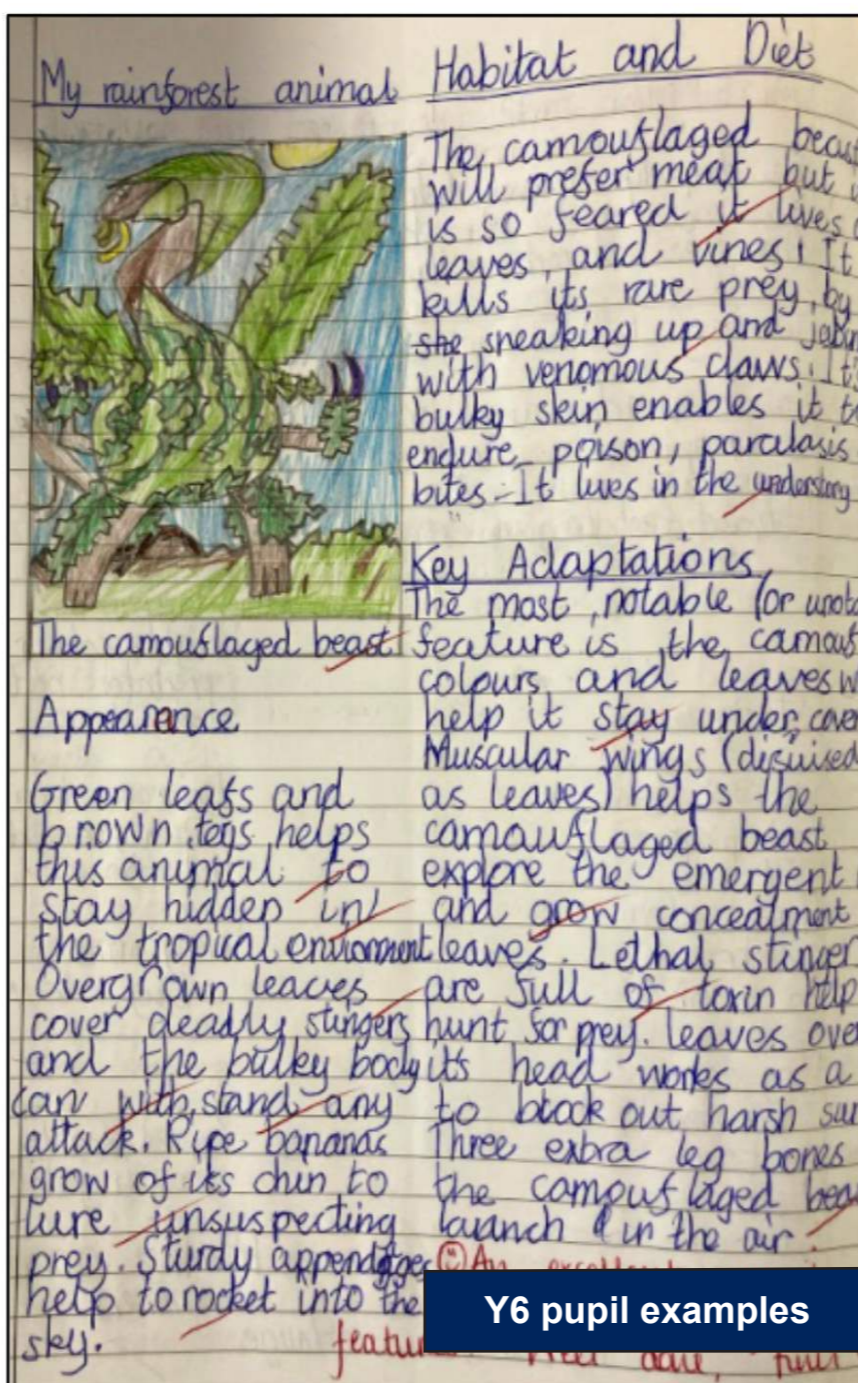 My rainforest animal
The camouflaged beast
Appearence
Green leafs and
brown legs helps
this animal to
stay hidden in
the tropical environment
Overgrown leaves
cover deadly stingers
and the bulky body
can with stand any
attack. Ripe bananas
grow of its chin to
lure unsuspecting
prey. Sturdy appendages
help to rocket into the
sky.
Habitat and Diet
The camouflaged beast
will prefer meat but
is so feared it lives
leaves, and vines. It
kills its rare prey, by
she sneaking up and
with venomous claws. It's
bulky skin enables it to
endure, poison, paralasis
bites. It lives in the understory
Key Adaptations
The most, notable (or
feature is the
colours and leaves
help it stay under cover
Muscular wings (disuised
as leaves) helps the
camouflaged beast
explore the emergent
and grow concealment
leaves. Lethal stinger
are full of toxin help
hunt for prey. leaves over
it's head works as a
to block out harsh
Three extra leg bones
the camouflaged
launch in the air.
An excellent
Y6 pupil examples